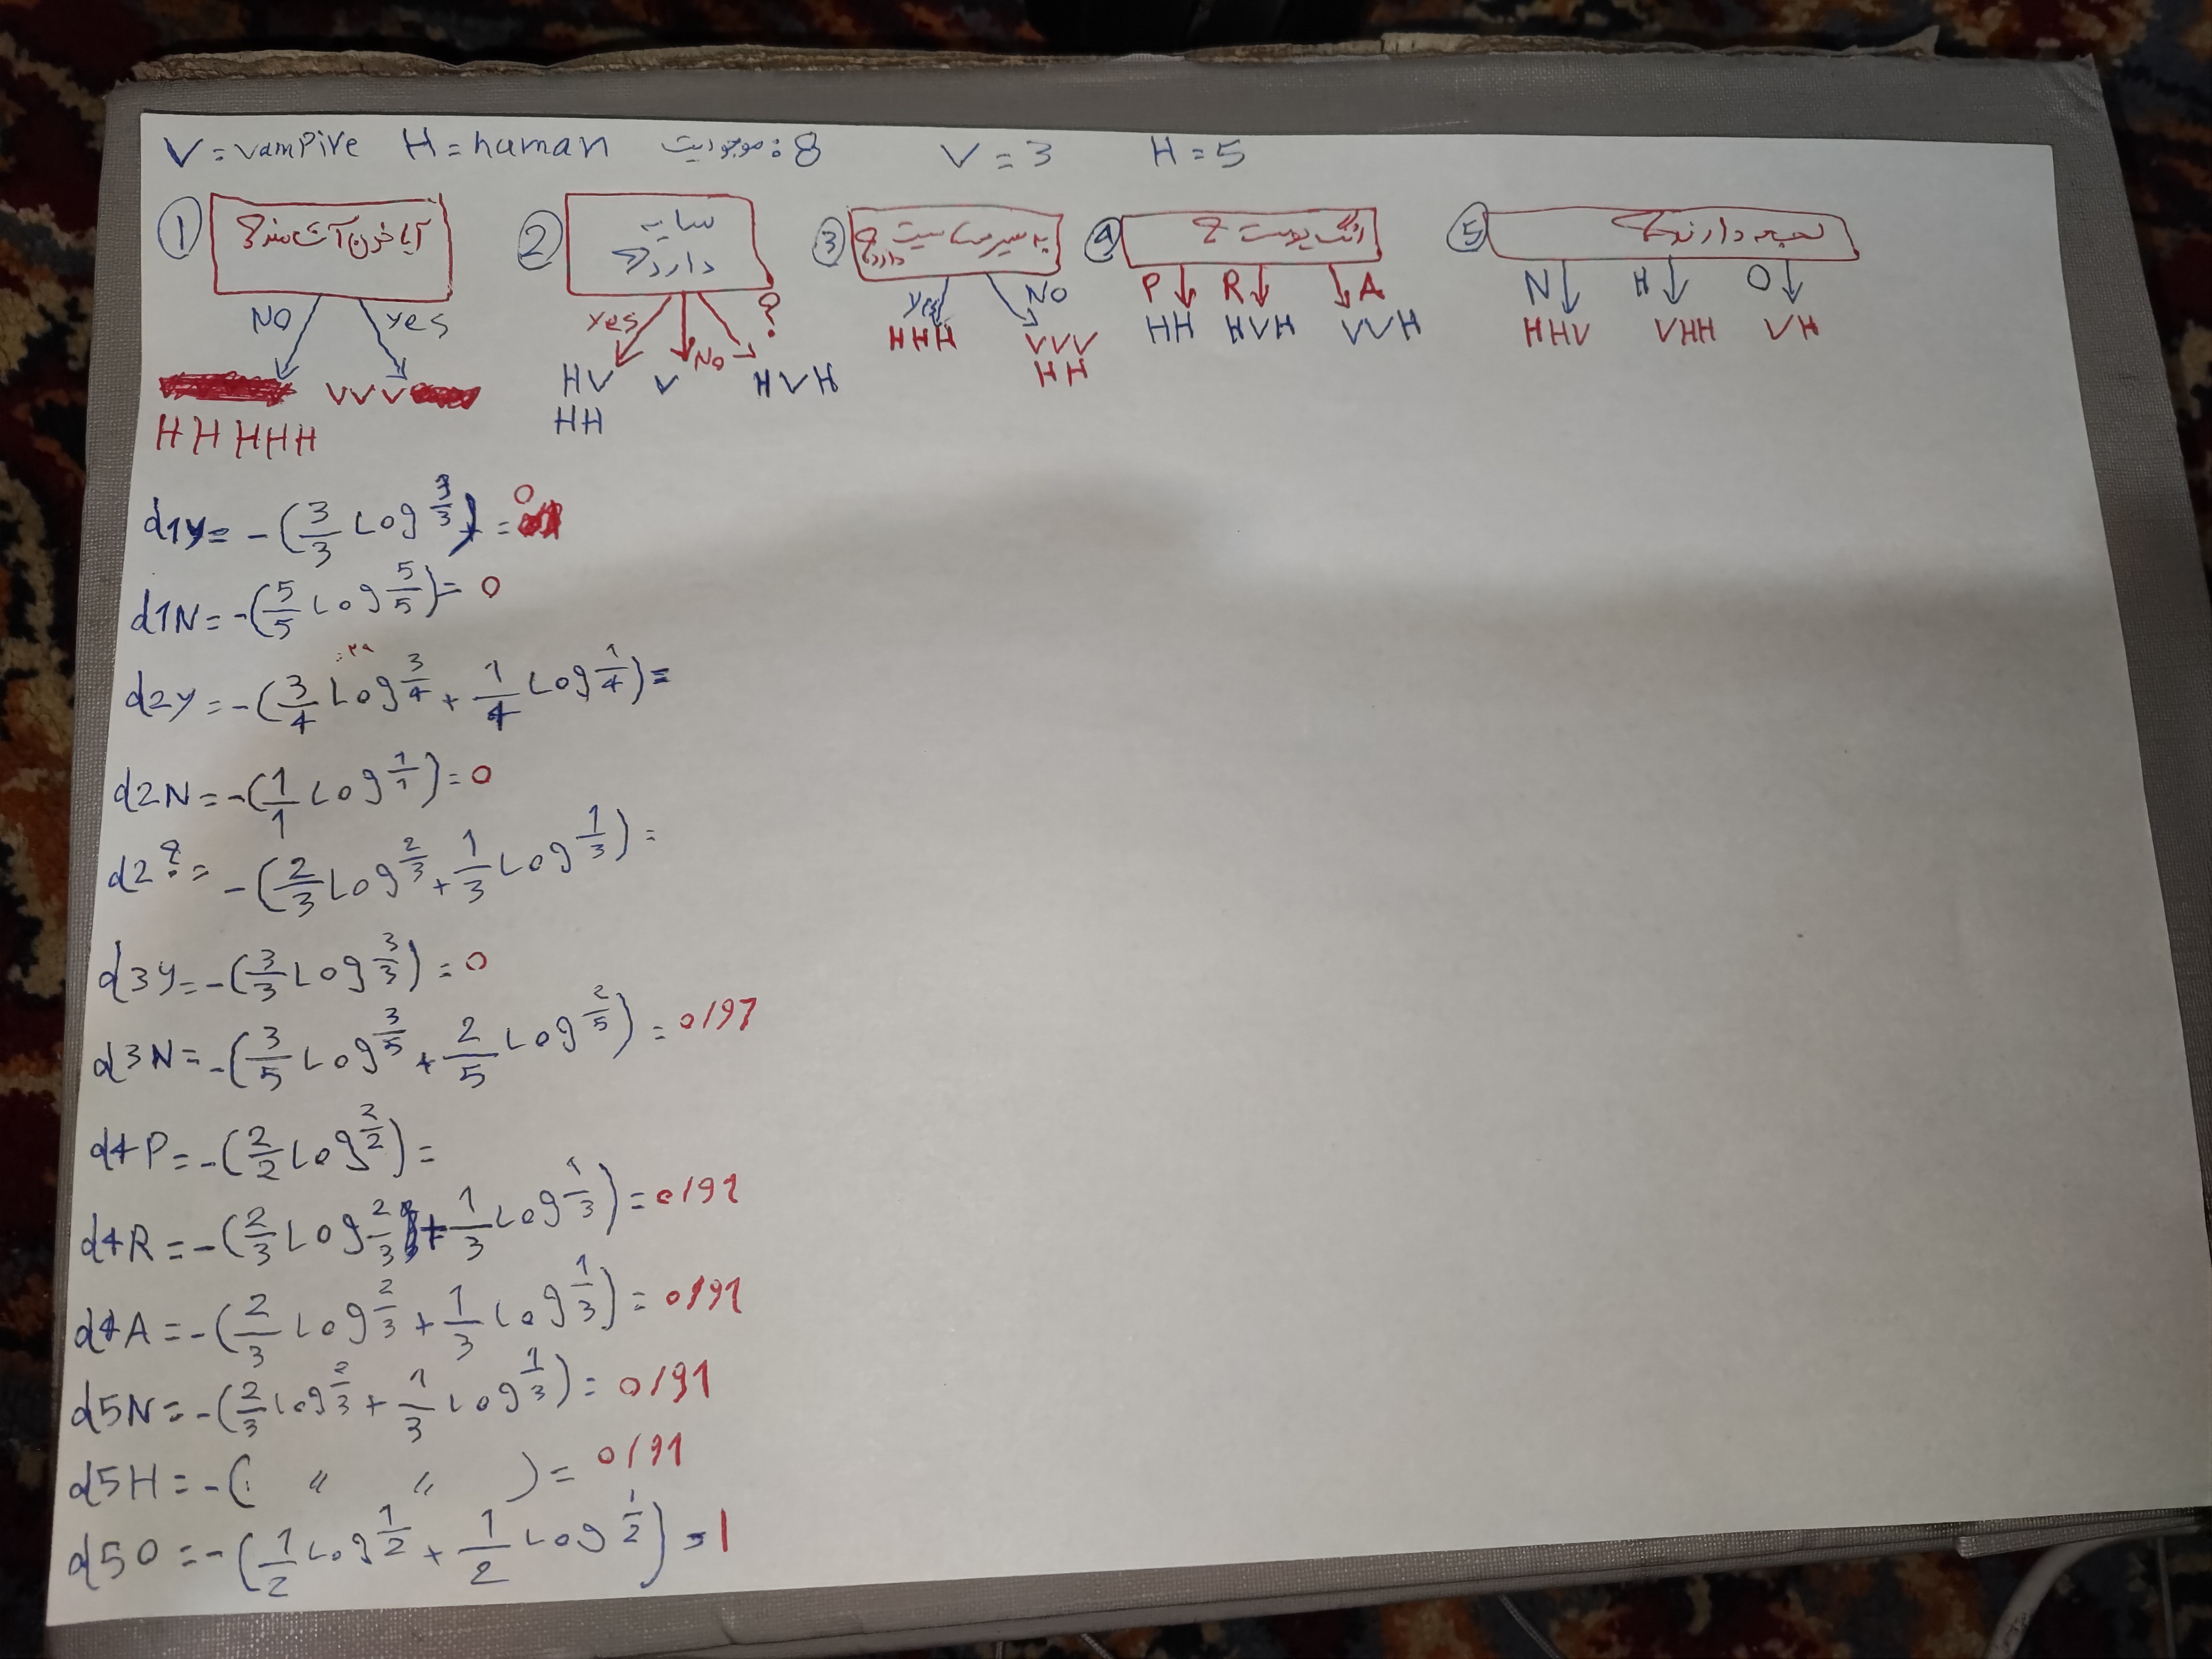 V = vampire H = human موجودیت : 8 V = 3 H = 5
① آیا خون آشامند؟
NO yes
VVV
HHHHH
② سایه دارد؟
yes No ?
HV V HVH
HH
③ به سیر حساسیت دارد؟
yes NO
HHH VVV
HH
④ رنگ پوست ؟
P R A
HH HVH VVH
⑤ لهجه دارند؟
N H O
HHV VHH VH
d1y = -(3/3 Log 3/3) = 0
d1N = -(5/5 Log 5/5) = 0
d2y = -(3/4 Log 3/4 + 1/4 Log 1/4) =
d2N = -(1/1 Log 1/1) = 0
d2? = -(2/3 Log 2/3 + 1/3 Log 1/3) =
d3y = -(3/3 Log 3/3) = 0
d3N = -(3/5 Log 3/5 + 2/5 Log 2/5) = 0/97
d4P = -(2/2 Log 2/2) =
d4R = -(2/3 Log 2/3 + 1/3 Log 1/3) = 0/91
d4A = -(2/3 Log 2/3 + 1/3 Log 1/3) = 0/91
d5N = -(2/3 Log 2/3 + 1/3 Log 1/3) = 0/91
d5H = -( " " ) = 0/91
d5O = -(1/2 Log 1/2 + 1/2 Log 1/2) = 1